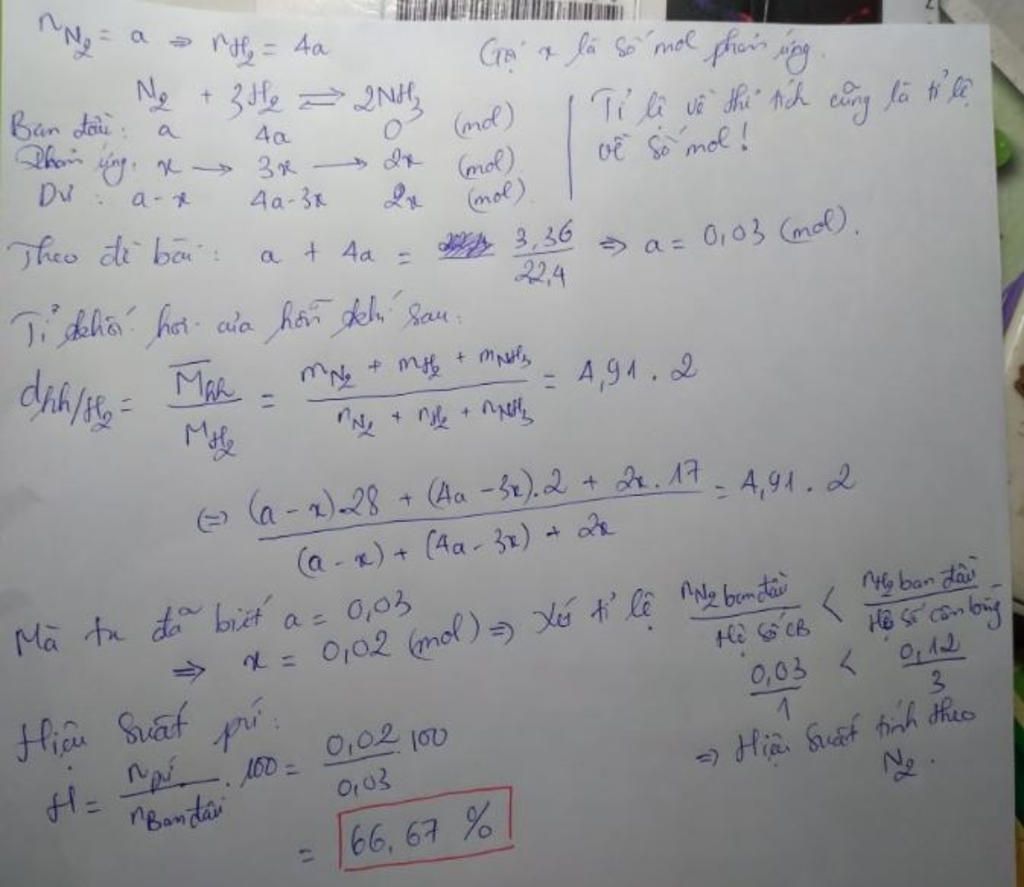 n_N₂ = a ⇒ n_H₂ = 4a
Gọi x là số mol phản ứng.
N₂ + 3H₂ ⇌ 2NH₃
Ban đầu: a 4a 0 (mol)
Phản ứng. x → 3x → 2x (mol)
Dư : a-x 4a-3x 2x (mol).
Tỉ lệ về thể tích cũng là tỉ lệ
về số mol!
Theo đề bài: a + 4a = 3,36/22,4 ⇒ a = 0,03 (mol).
Tỉ khối hơi của hỗn khí sau:
dhh/H₂ = M̅hh/M_H₂ = (m_N₂ + m_H₂ + m_NH₃)/(n_N₂ + n_H₂ + n_NH₃) = 4,91 . 2
⇔ ((a - x).28 + (4a - 3x).2 + 2x.17)/((a - x) + (4a - 3x) + 2x) = 4,91 . 2
Mà ta đã biết a = 0,03
⇒ x = 0,02 (mol) ⇒ Xét tỉ lệ n_N₂ ban đầu/Hệ số CB < n_H₂ ban đầu/Hệ số cân bằng
0,03/1 < 0,12/3
⇒ Hiệu suất tính theo
N₂.
Hiệu suất pứ:
H = n pứ/n Ban đầu . 100 = 0,02/0,03 . 100
= 66,67 %